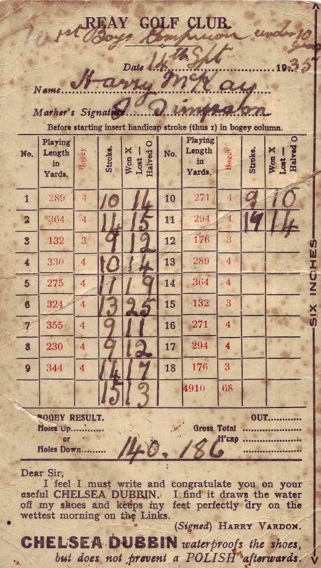 REAY GOLF CLUB.
1st Boys Champion under 10 years
Date 14th Sept 1935
Name Harry McKay
Marker's Signature J Simpston
Before starting insert handicap stroke (thus 1) in bogey column.
No. Playing Length in Yards. Bogey Stroke. Won X Lost — Halved O No. Playing Length in Yards. Bogey Stroke. Won X Lost — Halved O
1 289 4 10 14 10 271 4 9 10
2 364 4 11 15 11 294 4 19 14
3 132 3 9 12 12 176 3
4 330 4 10 14 13 289 4
5 275 4 11 19 14 364 4
6 324 4 13 25 15 132 3
7 355 4 9 11 16 271 4
8 230 4 9 12 17 294 4
9 344 4 14 17 18 176 3
15 13 4910 68
BOGEY RESULT. OUT
Holes Up Gross Total
or H'cap
Holes Down
140. 186
Dear Sir,
I feel I must write and congratulate you on your
useful CHELSEA DUBBIN. I find it draws the water
off my shoes and keeps my feet perfectly dry on the
wettest morning on the Links.
(Signed) HARRY VARDON.
CHELSEA DUBBIN waterproofs the shoes,
but does not prevent a POLISH afterwards.
SIX INCHES